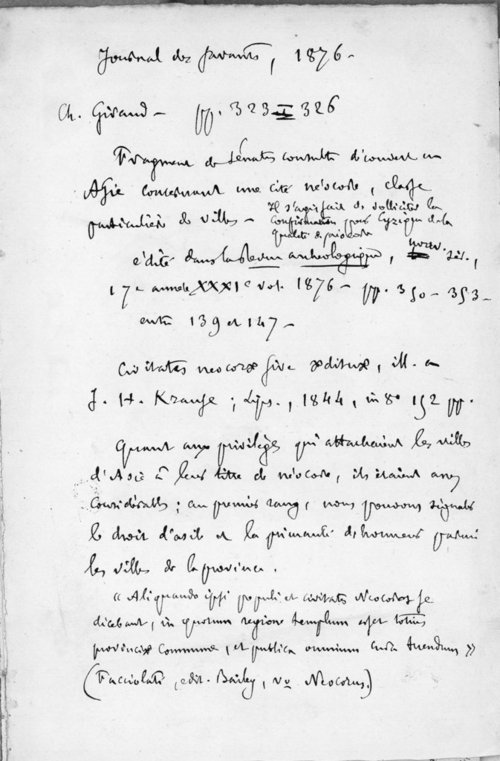 Journal des savants, 1876 -
Ch. Giraud - pp. 323 - 326
Fragment de Sénatus consulte découvert en
Asie concernant une cité néocore, classe
particulière de villes - Il s'agissait de solliciter la
confirmation pour Cyzique de la
qualité de néocore
édité dans la Revue archéologique, nouv. sér.,
17e année XXXIe vol. 1876 - pp. 350 - 353 -
entre 139 et 147 -
Civitates neocoræ sive ædituæ, ill. a
J. H. Krause ; Lips., 1844, in 8° 152 pp.
Quant aux privilèges qui attachaient les villes
d'Asie à leur titre de néocore, ils étaient assez
considérables ; au premier rang, nous pouvons signaler
le droit d'asile et la primauté d'honneur parmi
les villes de la province.
« Aliquando ipsi populi et civitates Neocoros se
dicebant, in quorum regione templum esset totius
provinciæ commune, et publica omnium cura tuendum »
(Facciolati, edit. Bailey, vo Neocorus.)